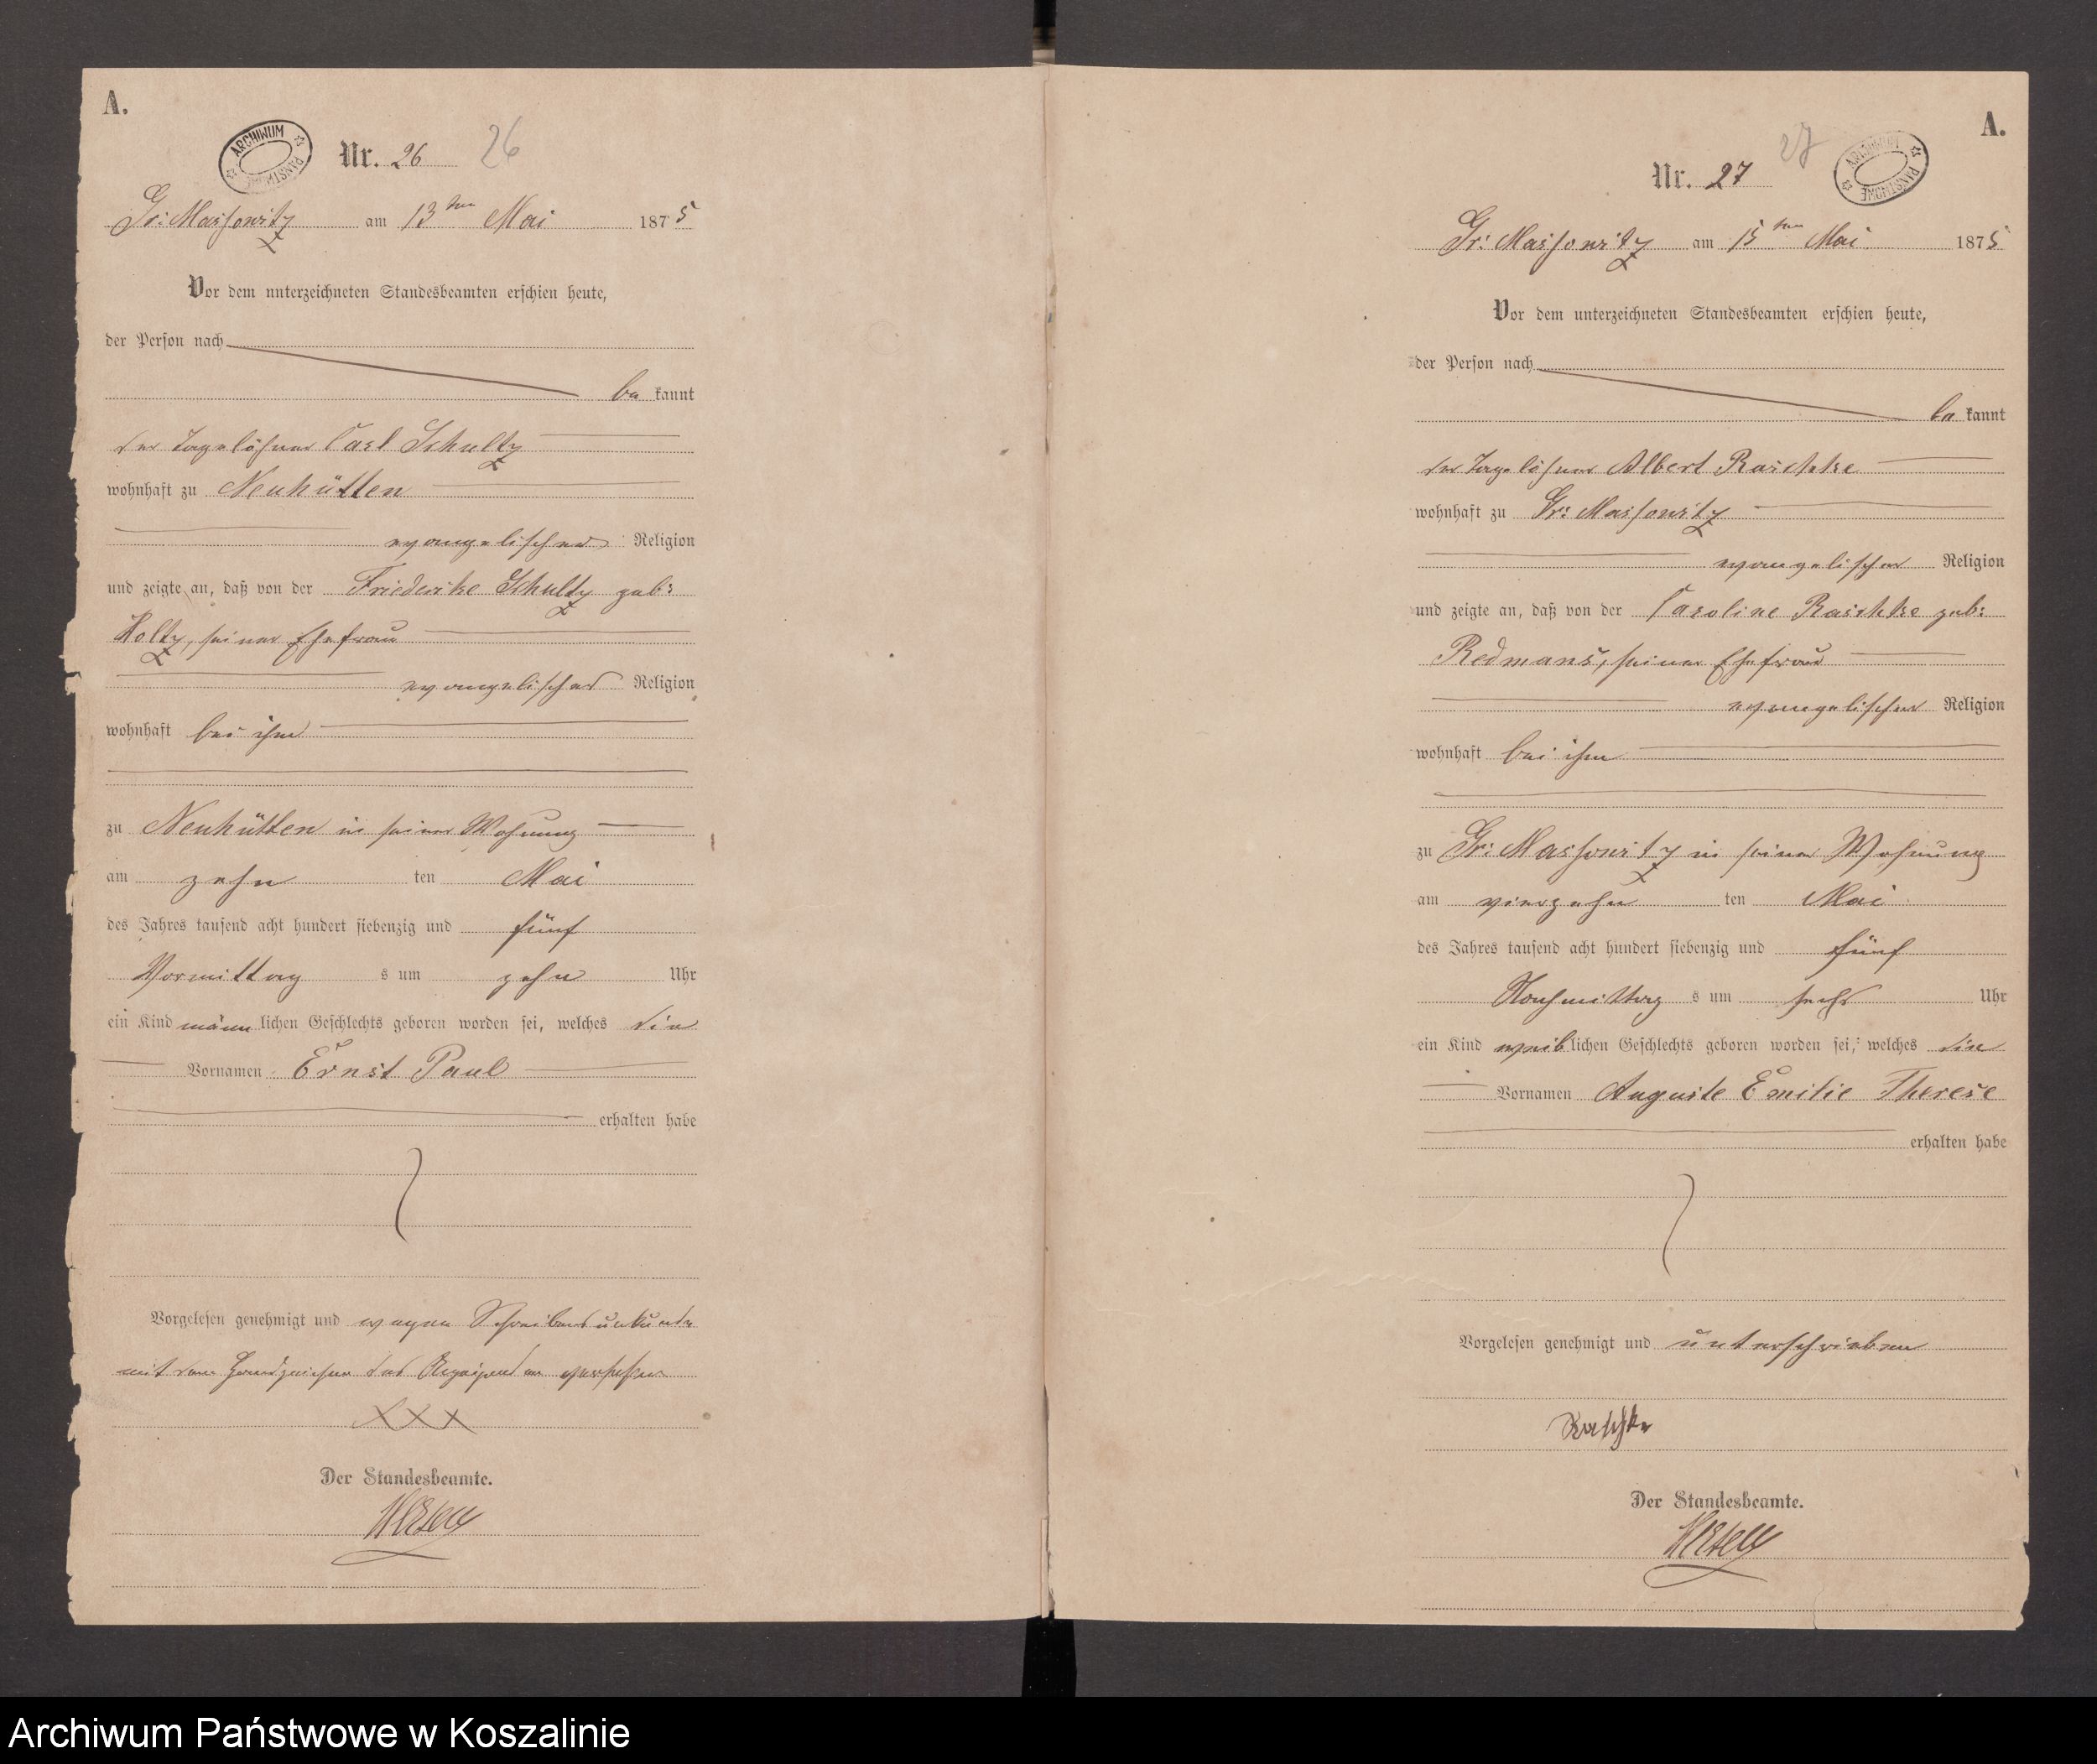 A.
ARCHIWUM PAŃSTWOWE
Nr. 26 26
Gr: Massowitz am 13ten Mai 1875
Vor dem unterzeichneten Standesbeamten erschien heute,
der Person nach
be kannt
der Tagelöhner Carl Schultz
wohnhaft zu Neuhütten
evangelischer Religion
und zeigte an, daß von der Friederike Schultz geb:
Holtz, seiner Ehefrau
evangelischer Religion
wohnhaft bei ihm
zu Neuhütten in seiner Wohnung
am zehn ten Mai
des Jahres tausend acht hundert siebenzig und fünf
Vormittag s um zehn Uhr
ein Kind männ lichen Geschlechts geboren worden sei, welches die
Vornamen Ernst Paul
erhalten habe
Vorgelesen genehmigt und wegen Schreibensunkunde
mit dem Handzeichen des versehen
XXX
Der Standesbeamte.
A.
ARCHIWUM PAŃSTWOWE
Nr. 27 27
Gr: Massowitz am 15ten Mai 1875
Vor dem unterzeichneten Standesbeamten erschien heute,
der Person nach
be kannt
der Tagelöhner Albert Raschke
wohnhaft zu Gr: Massowitz
evangelischer Religion
und zeigte an, daß von der Caroline Raschke geb:
Redmans, seiner Ehefrau
evangelischer Religion
wohnhaft bei ihm
zu Gr: Massowitz in seiner Wohnung
am vierzehn ten Mai
des Jahres tausend acht hundert siebenzig und fünf
Nachmittag s um sechs Uhr
ein Kind weib lichen Geschlechts geboren worden sei, welches die
Vornamen Auguste Emilie Therese
erhalten habe
Vorgelesen genehmigt und unterschrieben
Raschke
Der Standesbeamte.
Archiwum Państwowe w Koszalinie